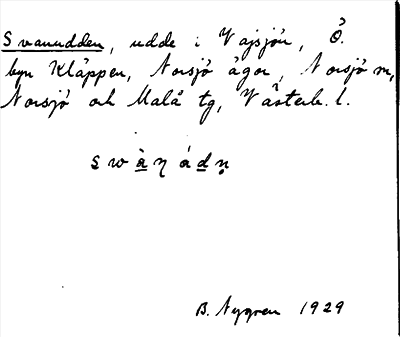 Svanudden, udde i Vajsjön, Ö.
byn Kläppen, Norsjö ägor, Norsjö sn,
Norsjö och Malå tg, Västerb. l.
B. Nygren 1929